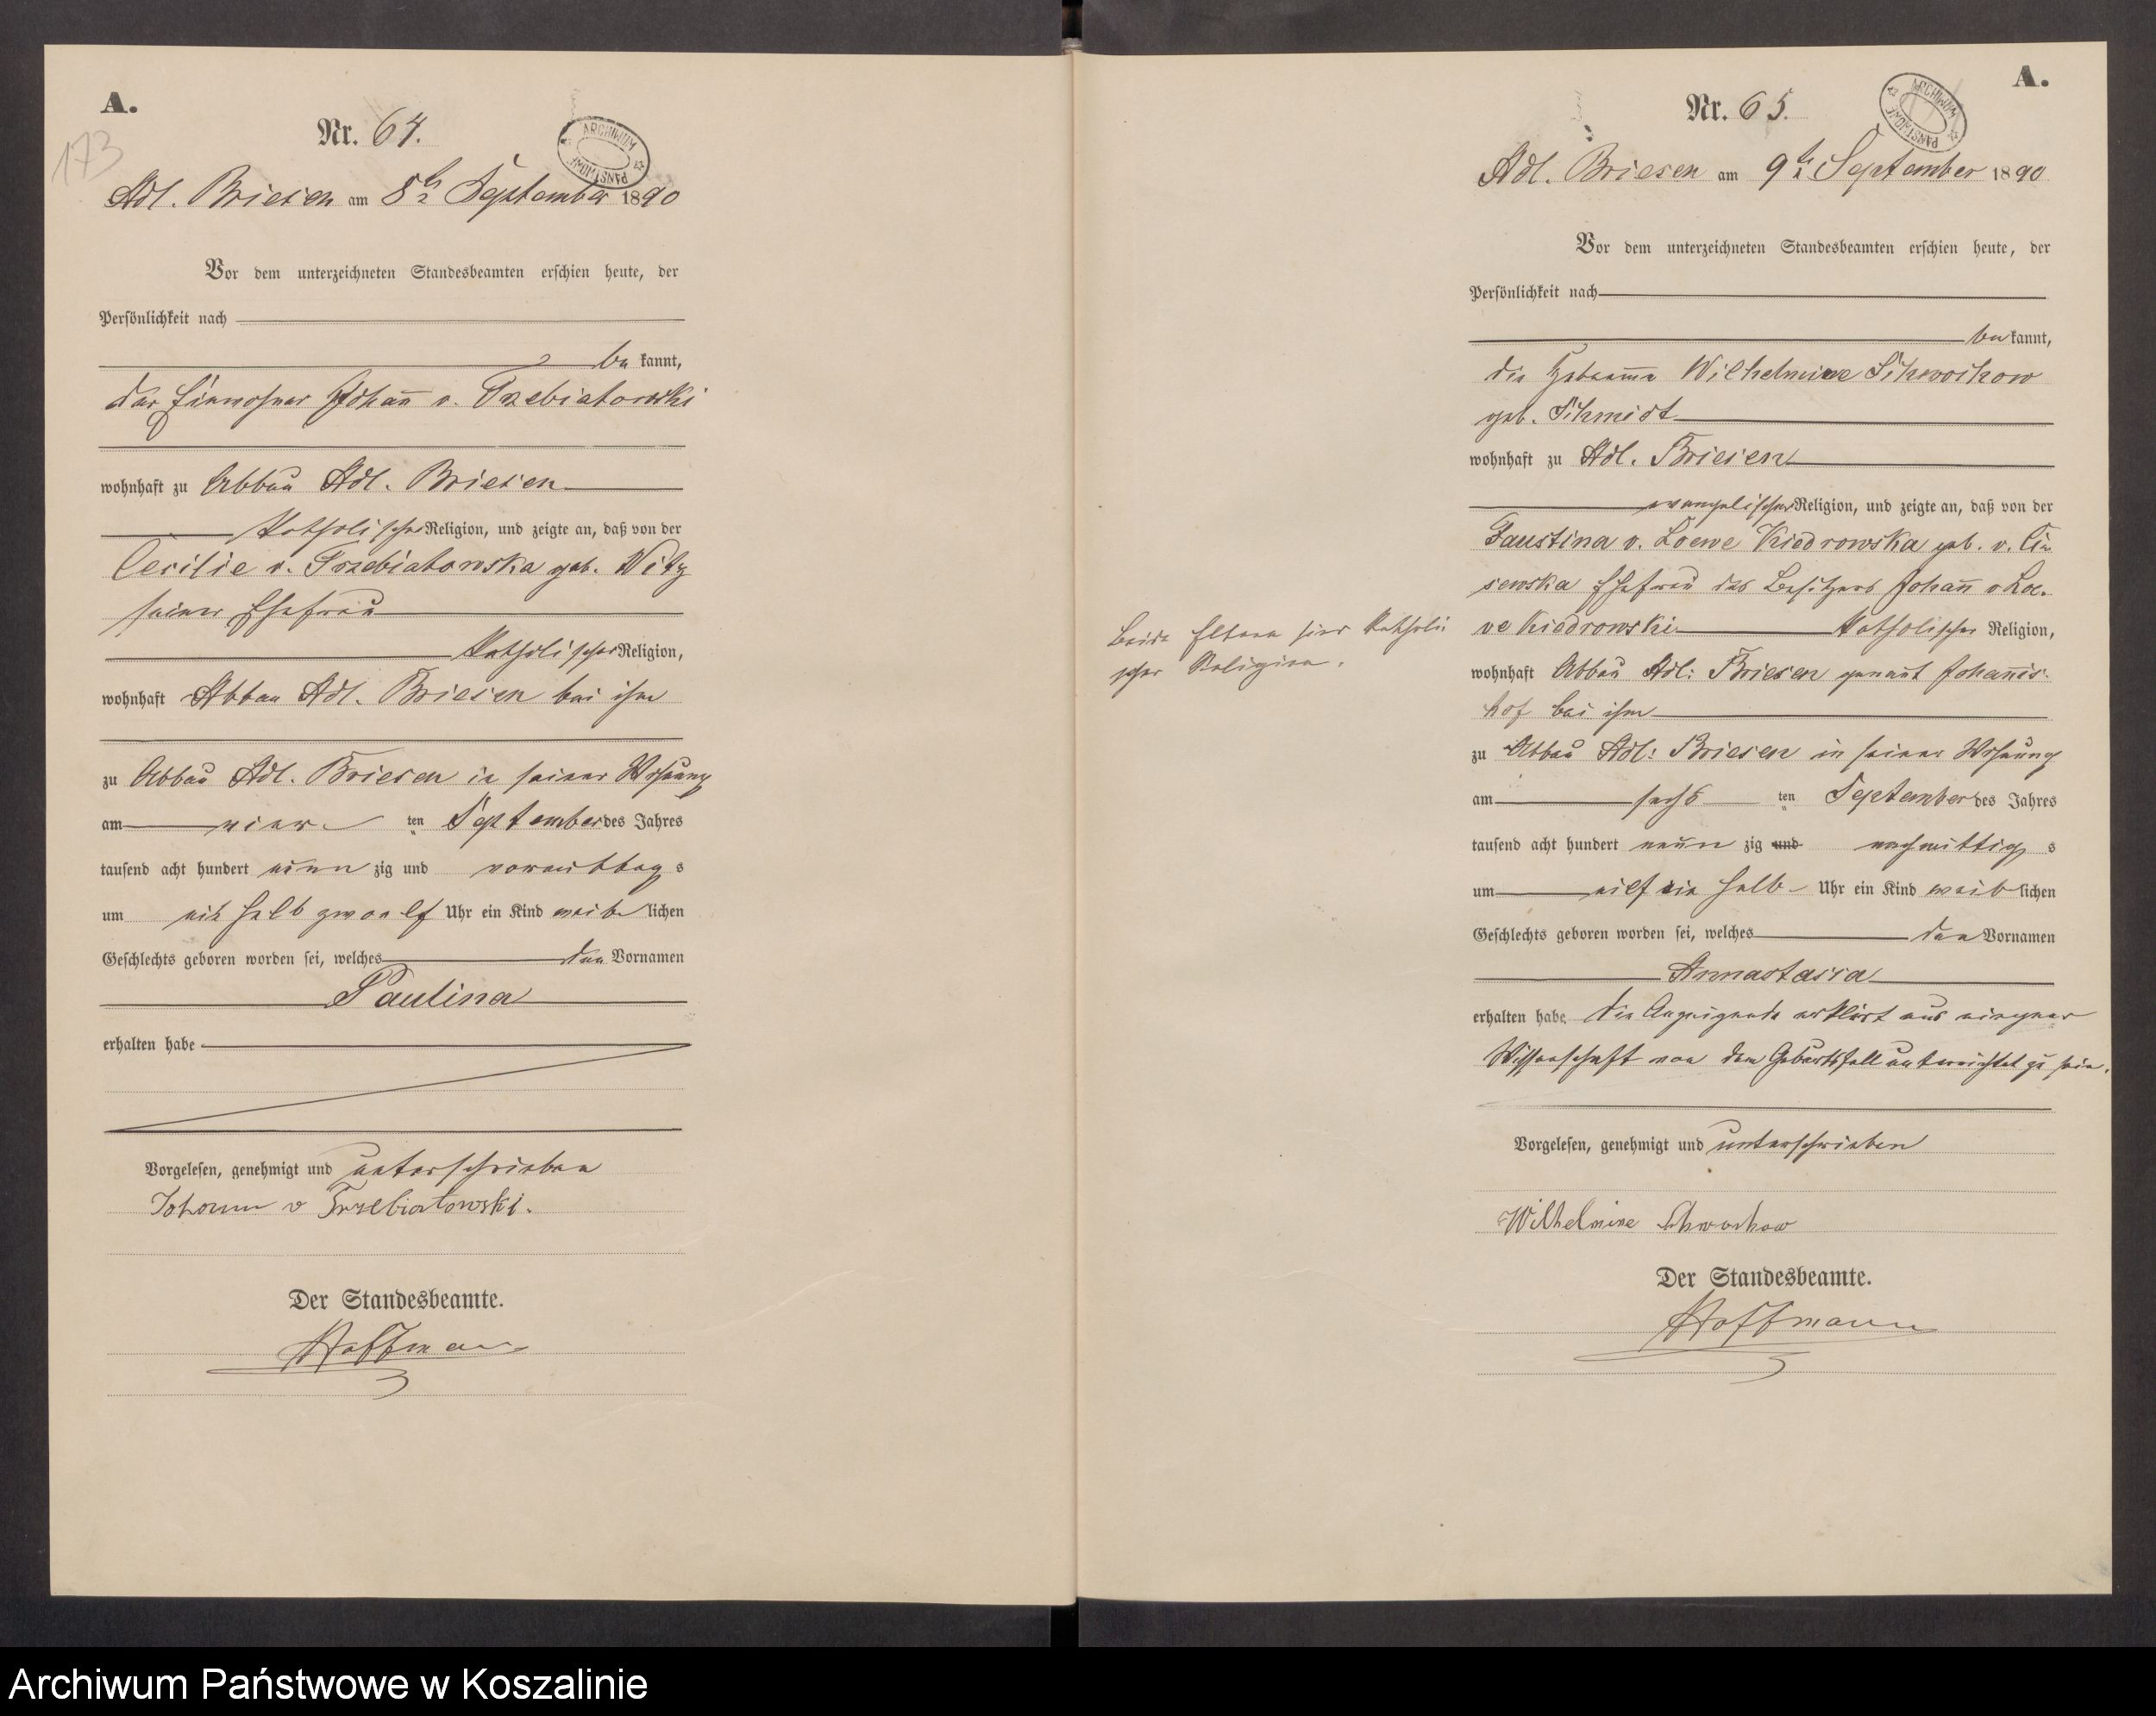 A.
173
Nr. 64.
ARCHIWUM PAŃSTWOWE
Adl. Briesen am 8ten September 1890
Vor dem unterzeichneten Standesbeamten erschien heute, der
Persönlichkeit nach
be kannt,
der Einwohner Johann v. Trzebiatowski
wohnhaft zu Abbau Adl. Briesen
katholischer Religion, und zeigte an, daß von der
Cecilie v. Trzebiatowska geb. Witz
seiner Ehefrau
katholischer Religion,
wohnhaft Abbau Adl. Briesen bei ihm
zu Abbau Adl. Briesen in seiner Wohnung
am vier ten September des Jahres
tausend acht hundert neun zig und vormittag s
um ein halb zwoelf Uhr ein Kind weib lichen
Geschlechts geboren worden sei, welches den Vornamen
Paulina
erhalten habe
Vorgelesen, genehmigt und unterschrieben
Johann v Trzebiatowski.
Der Standesbeamte.
Hoffmann
A.
Nr. 65.
ARCHIWUM PAŃSTWOWE
Adl. Briesen am 9ten September 1890
Vor dem unterzeichneten Standesbeamten erschien heute, der
Persönlichkeit nach
be kannt,
die Hebamme Wilhelmine Schwochow
geb. Schmidt
wohnhaft zu Adl. Briesen
evangelischer Religion, und zeigte an, daß von der
Faustina v. Loewe Kiedrowska geb. v. Cie
sewska Ehefrau des Besitzers Johann v Loe-
we Kiedrowski katholischer Religion,
Beide Eltern sind katholi
scher Religion.
wohnhaft Abbau Adl: Briesen genannt Johannis-
hof bei ihm
zu Abbau Adl: Briesen in seiner Wohnung
am sechs ten September des Jahres
tausend acht hundert neun zig und nachmittag s
um elf ein halb Uhr ein Kind weib lichen
Geschlechts geboren worden sei, welches den Vornamen
Annastasia
erhalten habe. Die Anzeigende erklärt aus eigener
Wissenschaft von dem Geburtsfall unterrichtet zu sein.
Vorgelesen, genehmigt und unterschrieben
Wilhelmine Schwochow
Der Standesbeamte.
Hoffmann
Archiwum Państwowe w Koszalinie